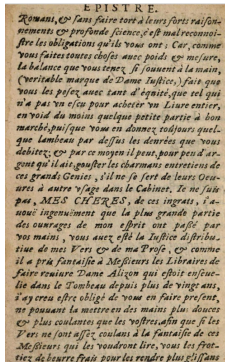 EPISTRE.
Romans, & sans faire tort à leurs forts raison-
nements & profonde science, c'est mal reconnoi-
stre les obligations qu'ils vous ont ; Car, comme
vous faites toutes choses avec poids & mesure,
la balance que vous tenez si souvent à la main,
(veritable marque de Dame Iustice,) fait que
vous les posez avec tant d'équité, que tel qui
n'a pas vn escu pour acheter vn Liure entier,
en void du moins quelque petite partie à bon
marché, puisque vous en donnez toûjours quel-
que lambeau par dessus les denrées que vous
debitez ; & par ce moyen il peut, pour peu d'ar-
gent qu'il ait, gouster les charmans entretiens de
ces grands Genies, s'il ne se sert de leurs Oeu-
ures à autre vsage dans le Cabinet. Ie ne suis
pas, MES CHERES, de ces ingrats, i'a-
uouë ingenuëment que la plus grande partie
des ouurages de mon esprit ont passé par
vos mains, vous auez esté la Iustice distribu-
tiue de mes Vers & de ma Prose, & comme
il a pris fantaisie à Messieurs les Libraires de
faire reuiure Dame Alizon qui estoit enseue-
lie dans le Tombeau depuis plus de vingt ans,
i'ay creu estre obligé de vous en faire present,
ne pouuant la mettre en des mains plus douces
& plus coulantes que les vostres, afin que si les
Vers ne sont assez coulans à la fantaisie de ces
Messieurs qui les voudront lire, vous les frot-
tiez de beurre frais pour les rendre plus glissans